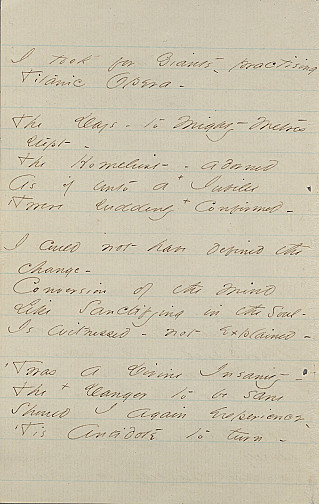 I took for Giants - practising
Titanic Opera -
The Days - to Mighty Metres
stept -
The Homeliest - adorned
As if unto a + Jubilee
'Twere suddenly + Confirmed -
I could not have defined the
change -
Conversion of the Mind
Like Sanctifying in the Soul -
Is witnessed - not Explained -
'Twas a Divine Insanity -
The + Danger to be sane
Should I again Experience
'Tis Antidote to turn -